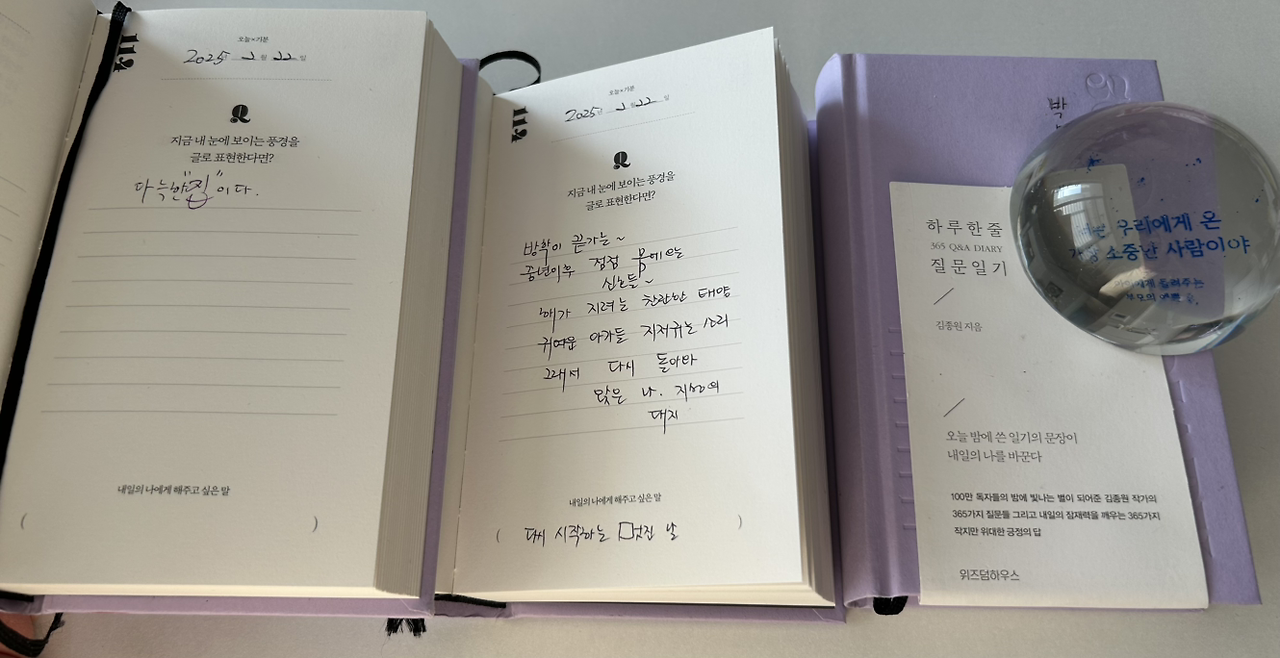 112
오늘×기분
2025년 2월 22일
Q
지금 내 눈에 보이는 풍경을
글로 표현한다면?
다늑한 "집"이다.
내일의 나에게 해주고 싶은 말
( )
112
오늘×기분
2025년 2월 22일
Q
지금 내 눈에 보이는 풍경을
글로 표현한다면?
방학이 끝가는~
중년이후 점점 몸에
신호들~
해가 지려는 찬란한 태양
귀여운 아가들 지저귀는 소리
그래서 다시 돌아와
맞은 나. 지성의
대지
내일의 나에게 해주고 싶은 말
( 다시 시작하는 멋진 날 )
박
하루 한 줄
365 Q&A DIARY
질문 일기
김종원 지음
오늘 밤에 쓴 일기의 문장이
내일의 나를 바꾼다
100만 독자들의 밤에 빛나는 별이 되어준 김종원 작가의
365가지 질문들 그리고 내일의 잠재력을 깨우는 365가지
작지만 위대한 긍정의 답
위즈덤하우스
우리에게 온
가장 소중한 사람이야
들려주는
부모의